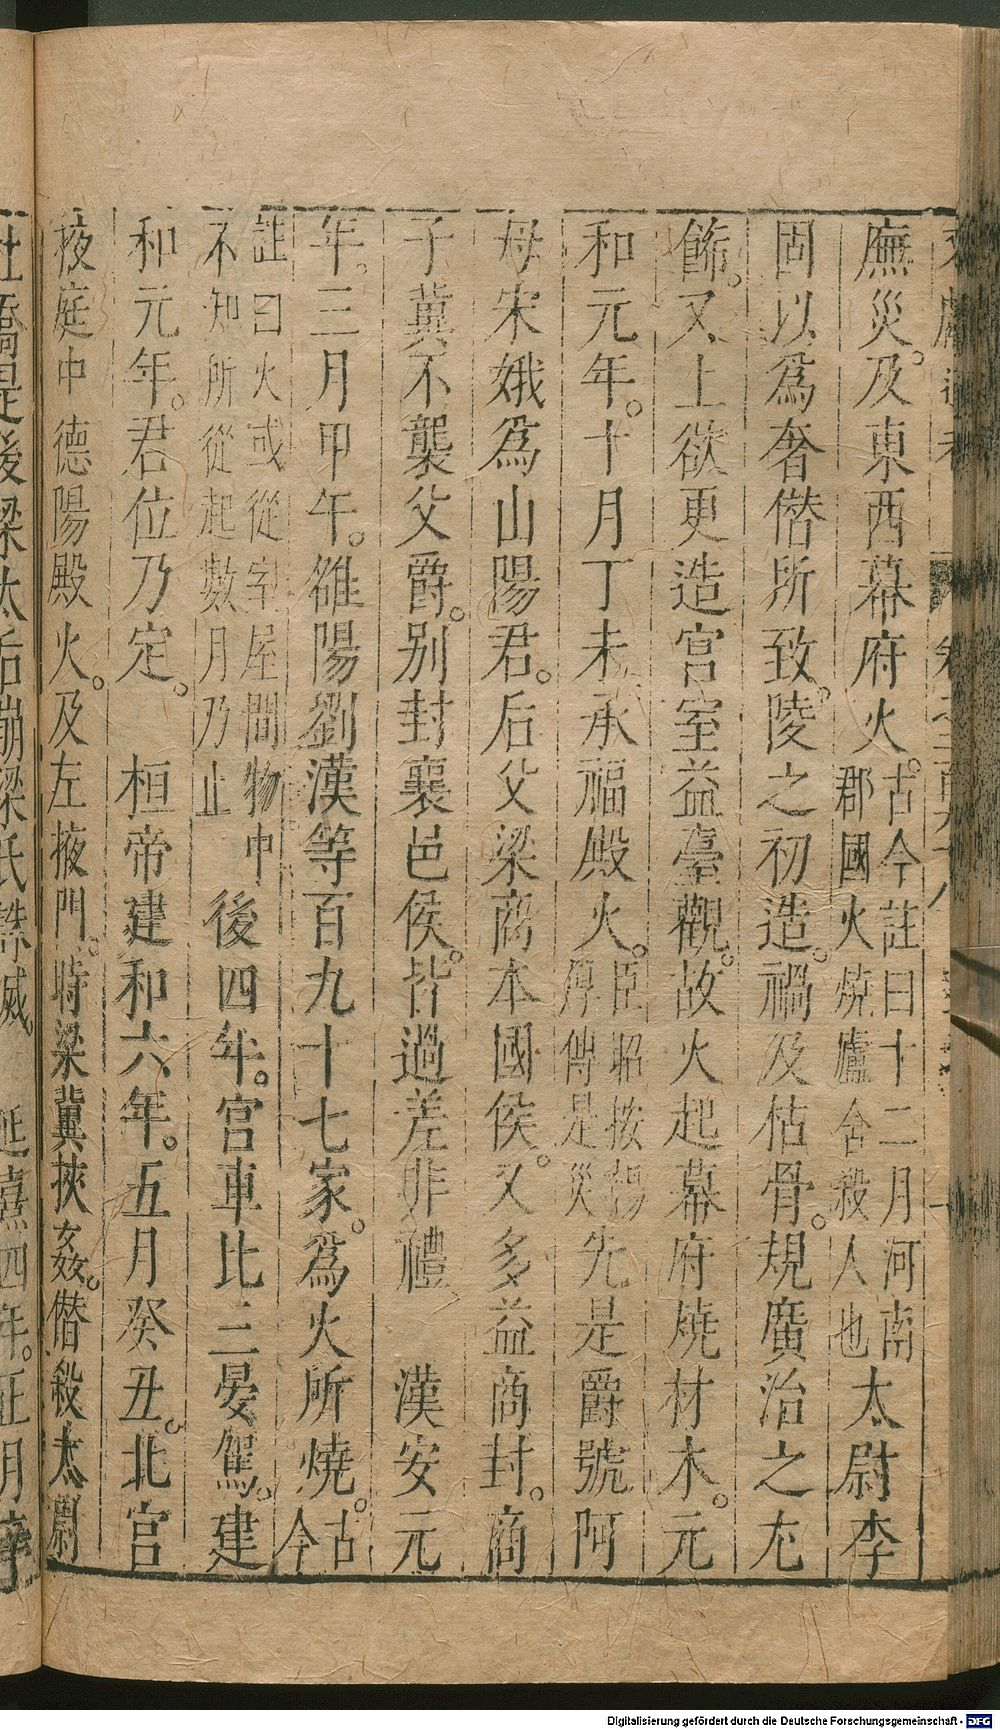 廡災。及東西幕府火。古今註曰十二月河南郡國火燒廬舍殺人也太尉李
固以爲奢僭所致。陵之初造。禍及枯骨。規廣治之尤
飾。又上欲更造宮室益臺觀。故火起幕府燒材木。元
和元年。十月丁未承福殿火。臣昭按楊厚傳是災先是爵號阿
母宋娥爲山陽君。后父梁商本國侯。又多益商封。商
子冀不襲父爵。別封襄邑侯。皆過差非禮 漢安元
年。三月甲午。雒陽劉漢等百九十七家。爲火所燒。古今
註曰火或從室屋間物中不知所從起數月乃止後四年。宮車比三晏駕。建
和元年。君位乃定。 桓帝建和六年。五月癸丑。北宮
掖庭中德陽殿火。及左掖門。時梁冀挾姦。僭殺太尉
杜喬是後梁太后崩梁氏誅滅。 延熹四年。正月
Digitalisierung gefördert durch die Deutsche Forschungsgemeinschaft - DFG